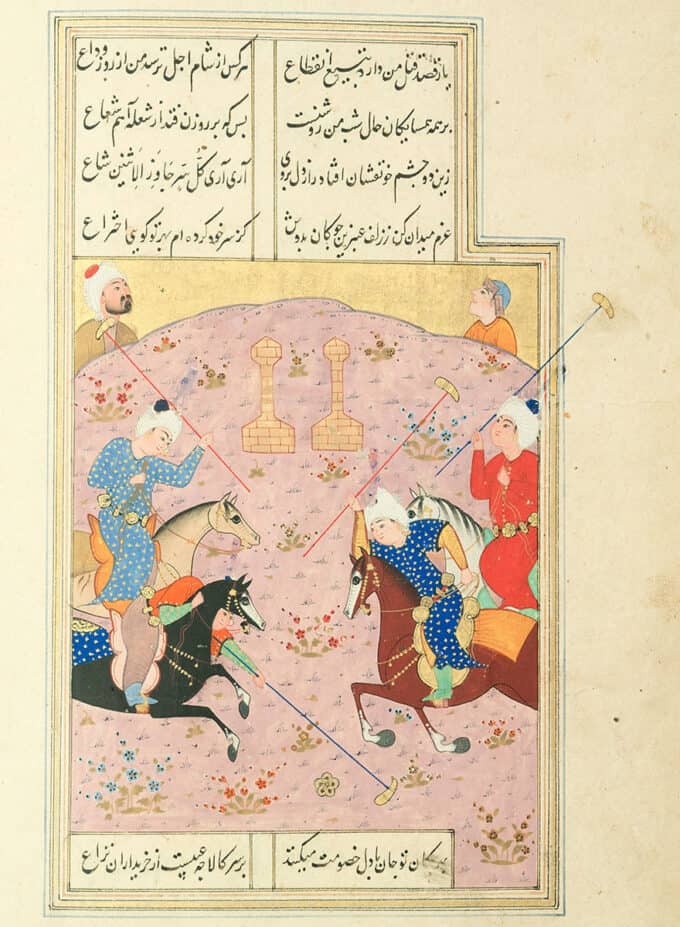 یار قصد قتل من دارد بتیغ انقطاع هر کس از شام اجل ترسد من از روز وداع
بر همه همسایکان حال شب من روشنست بس که بر روزن فتد از شعله آهم شعاع
زین دو چشم خونفشان افتاد راز دل بروی آری آری کلُّ سر جاوز الاثنین شاع
عزم میدان کن ز زلف عنبرین چوکان بدوش کز سر خود کرده ام بهر تو کویی اختراع
تو جان با دل خصومت میکند بر سر کالا چه عیبست از خریداران نزاع